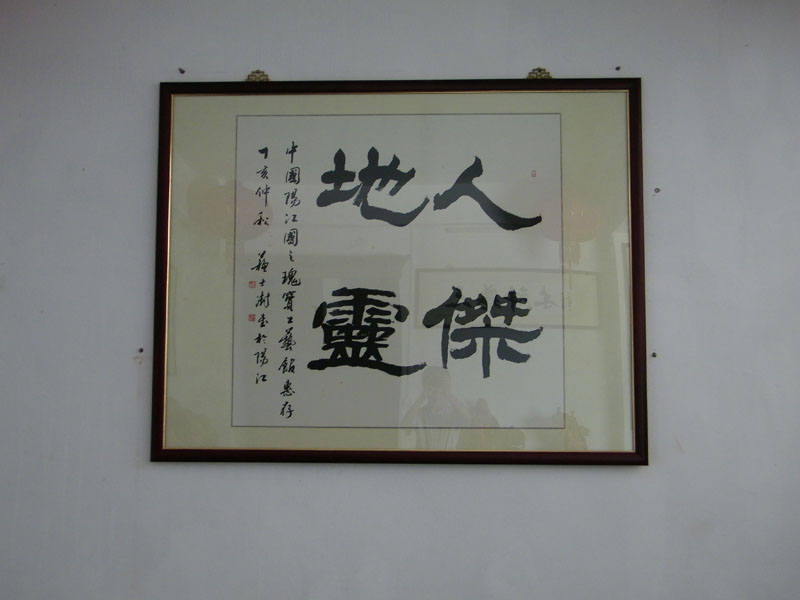 人傑
地靈
中國陽江國之瑰寶工藝館惠存
丁亥仲秋 蘇士澍書於陽江